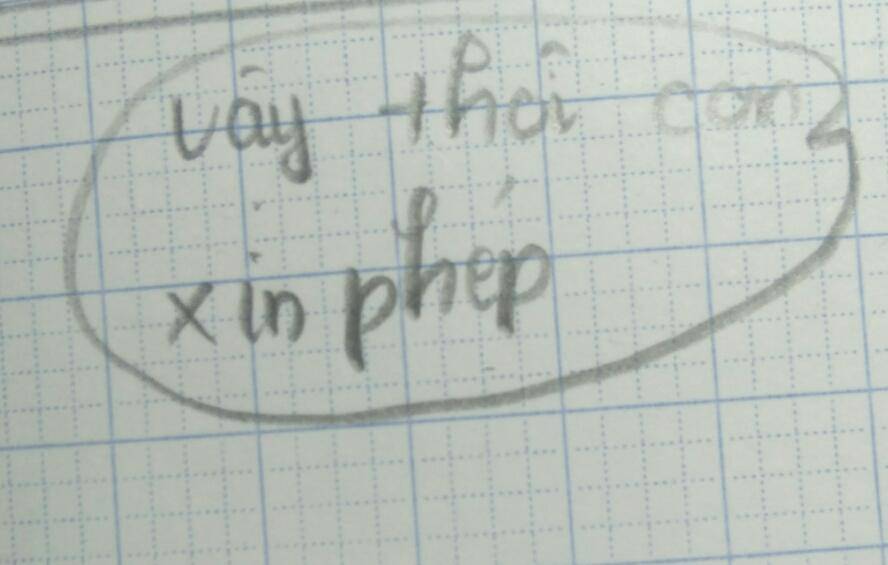 vây thôi con
xin phép